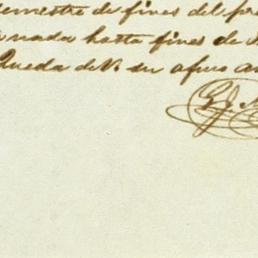 semestre de fines del pr
rnada hasta fines de
Queda de V. su afmo a